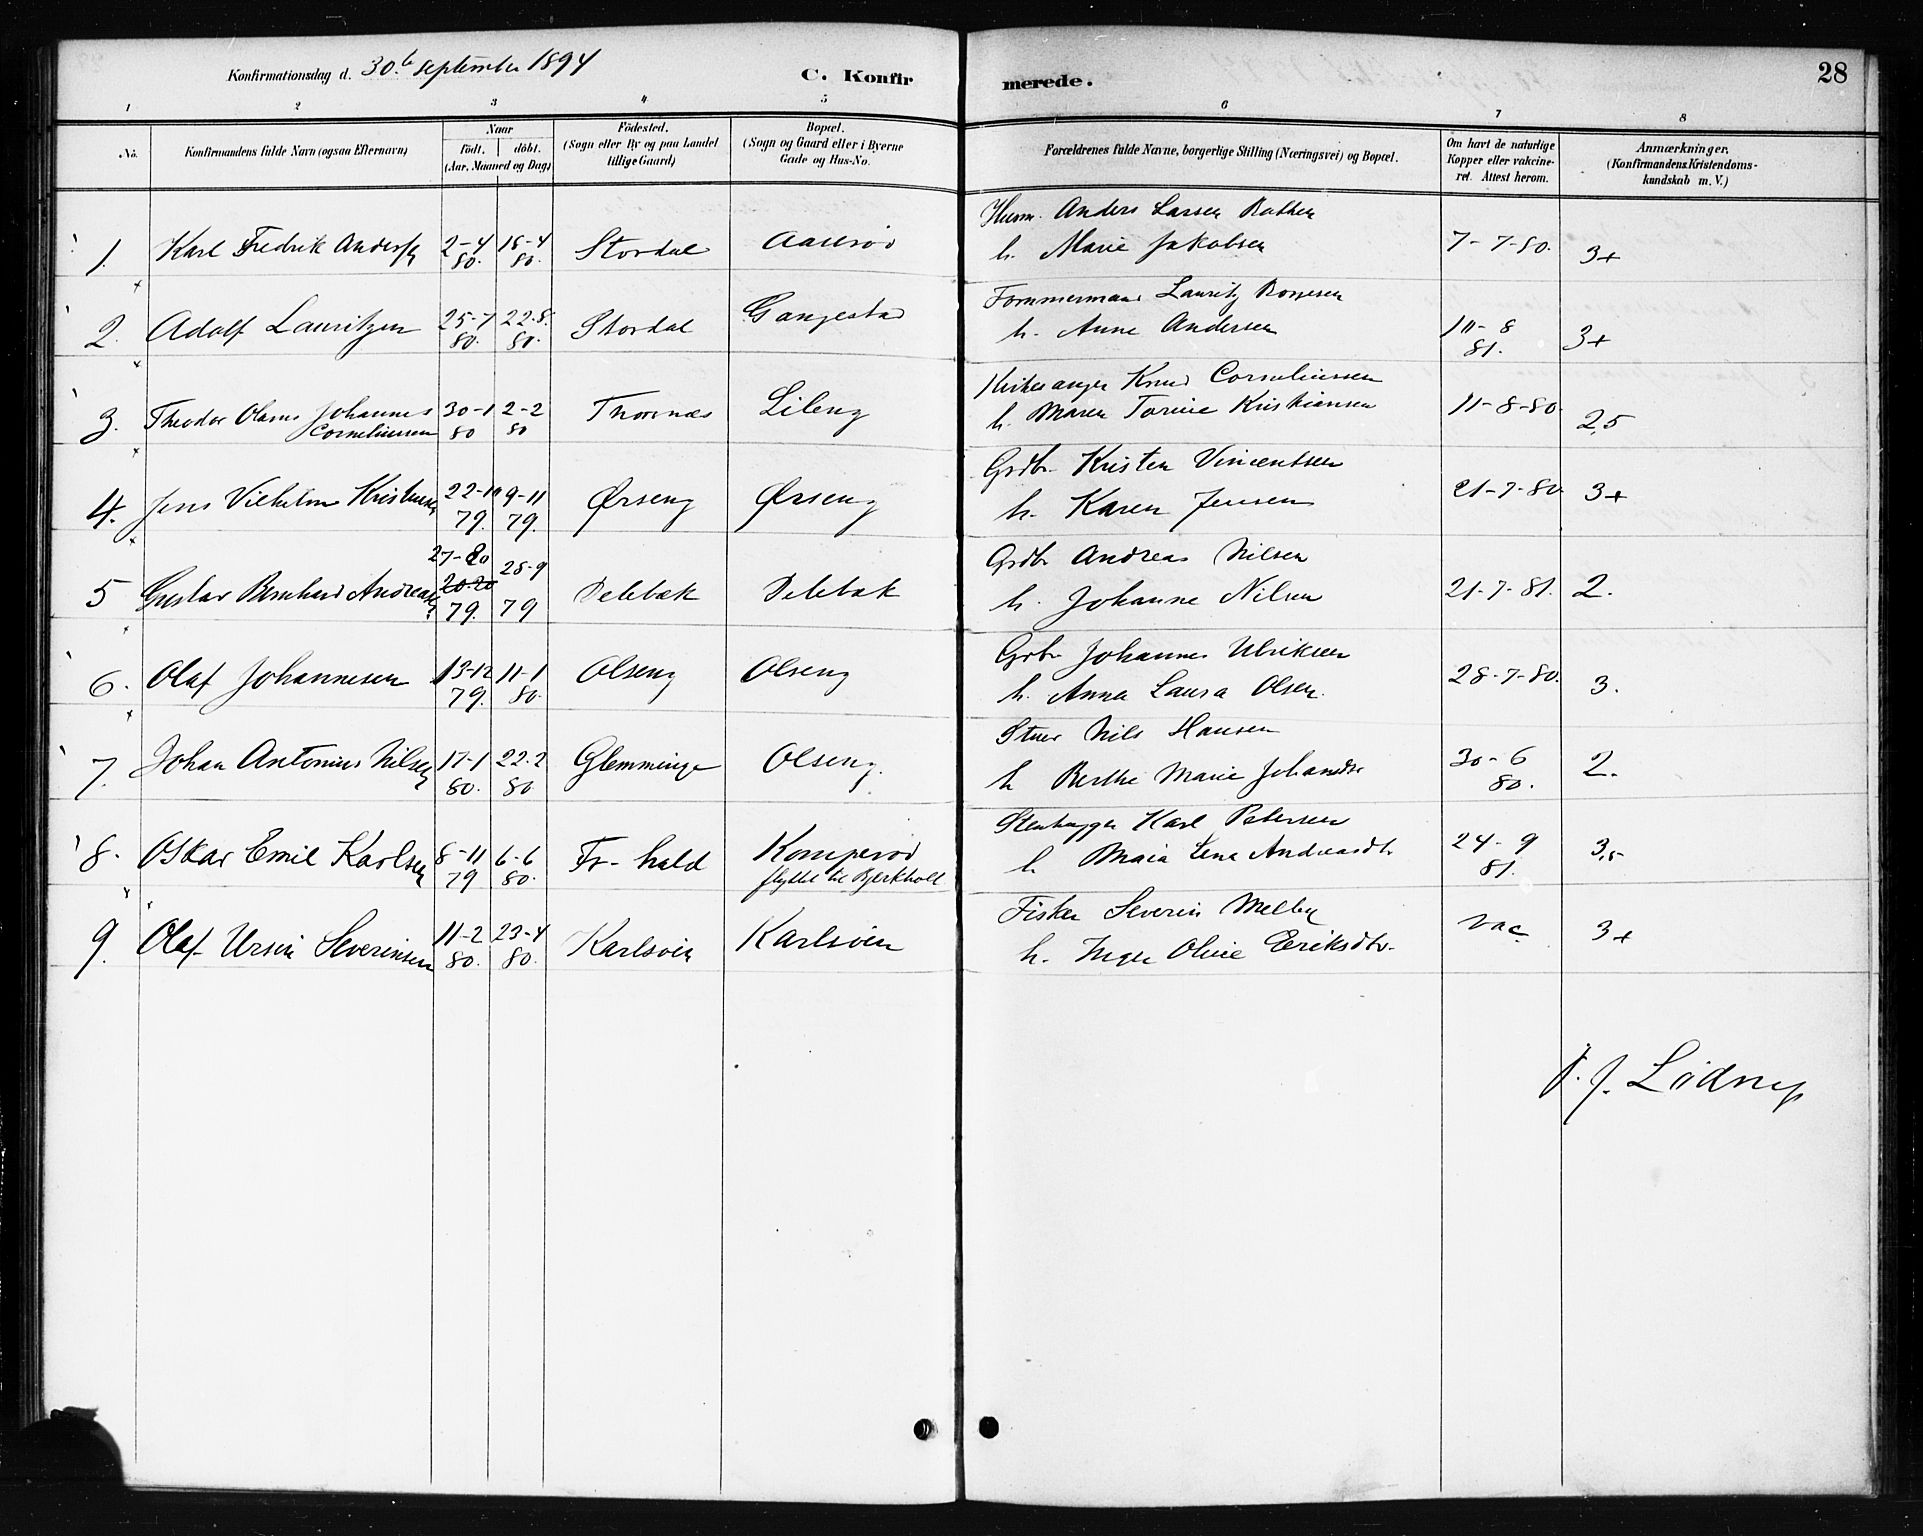 Konfirmationsdag d. 30.te september 1894
C. Konfirmerede.
28
1 2 3 4 5 6 7 8
No.
Konfirmandens fulde Navn (ogsaa Efternavn)
Naar
født. | döbt.
(Aar, Maaned og Dag)
Födested.
(Sogn eller By og paa Landet
tillige Gaard)
Bopæl.
(Sogn og Gaard eller i Byerne
Gade og Hus-No.
Forældrenes fulde Navne, borgerlige Stilling (Næringsvei) og Bopæl.
Om havt de naturlige
Kopper eller vakcine-
ret. Attest herom.
Anmærkninger.
(Konfirmandens Kristendoms-
kundskab m. V.)
1. Karl Fredrik Anders 2-4 80. 18-4 80. Stordal Aaserød
Husm. Anders Larsen
h. Marie Jakobsen 7-7-80. 3+
2. Adolf Lauritzen 25-7 80. 22-8. 80. Stordal Gangestad
Tømmermand Lauritz
h. Anne Andersen 10-8 81. 3+
3. Theodor Olaus Johannes Corneliussen 30-1 80 2-2 80 Thornæs Lileng
Kirkesanger Knud Corneliussen
h. Maren Torine Kristiansen 11-8-80. 2,5
4. Jens Vilhelm 22-10 79. 9-11 79. Ørseng Ørseng
Grdbr. Kristen Vincentsen
h. Karen Jensen 21-7-80. 3+
5 Gustav Bernhard Andreas 27-8 79. 28-9 79 Delebæk Delebæk
Grdbr Andreas Nilsen
h. Johanne Nilsen 21-7-81. 2.
6. Olaf Johannesen 13-12 79. 11-1 80. Olseng Olseng
Grbr Johannes Ulriksen
h. Anna Laura Olsen. 28-7-80. 3.
7. Johan Antonius Nilsen 17-1 80. 22-2 80 Glemminge Olseng.
Stuer Nils Hansen
h Berthe Marie Johansdtr 30-6 80. 2.
8. Oskar Emil Karlsen 8-11 79 6-6 80. Fr-hald Komperød
flyttet til Bjerkholt
Stenhugger Karl Petersen
h Maia Lena Andreasdtr. 24-9 81. 3,5
9. Olaf Ursin Severinsen 11-2 80. 23-4 80. Karlsøien Karlsøien
Fisker Severin Melby
h. Inger Oline Eriksdtr. vac. 3+
J. J. Lødrup